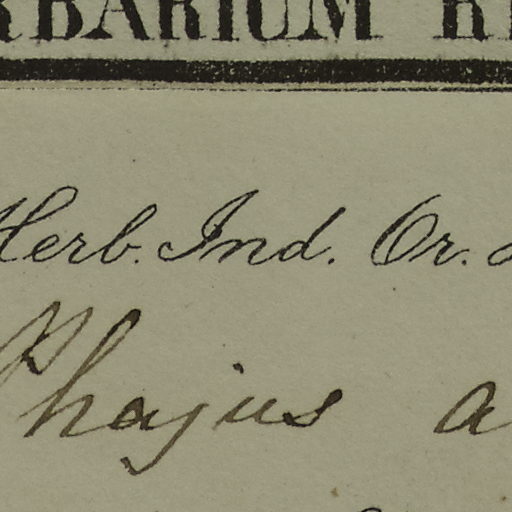 RBARIUM
Herb. Ind. Or.
Phajus a